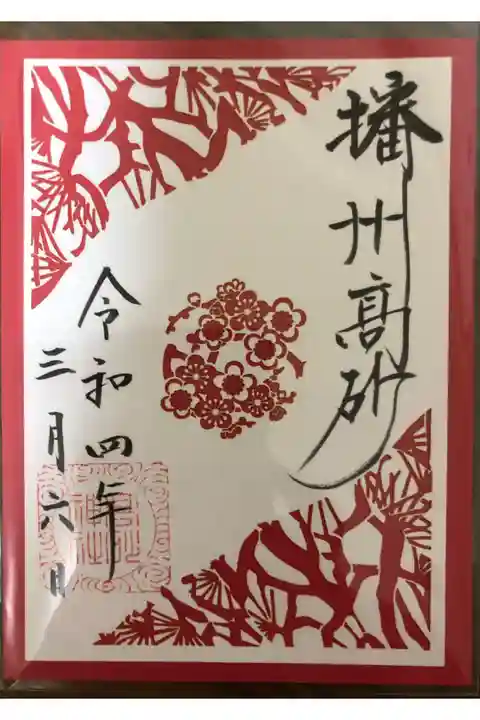 播州高砂
令和四年
三月六日